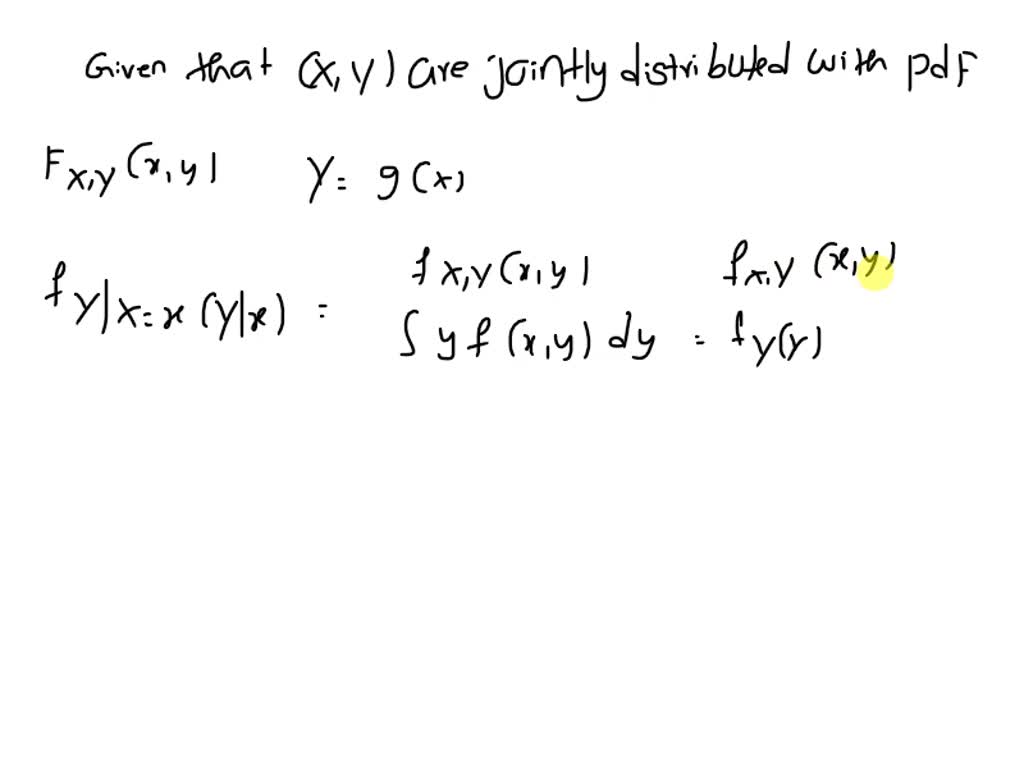 Given that (X, Y) are jointly distributed with pdF
F X,Y (x, y) Y = g(x)
f Y|X=x (Y|x) = f X,Y (x, y) f X,Y (x, y)
∫ y f (x, y) dy = f Y(Y)